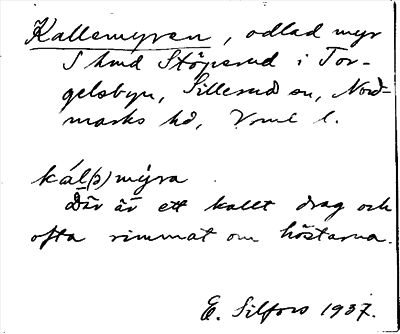 Kallemyren, odlad myr
S hmd Stöpsrud i Tor-
gelsbyn, Sillerud sn, Nord-
marks hd, Vrml l.
kál(þ)mýra
Där är ett kallt drag och
ofta rimmat om höstarna.
E. Silfors 1937.